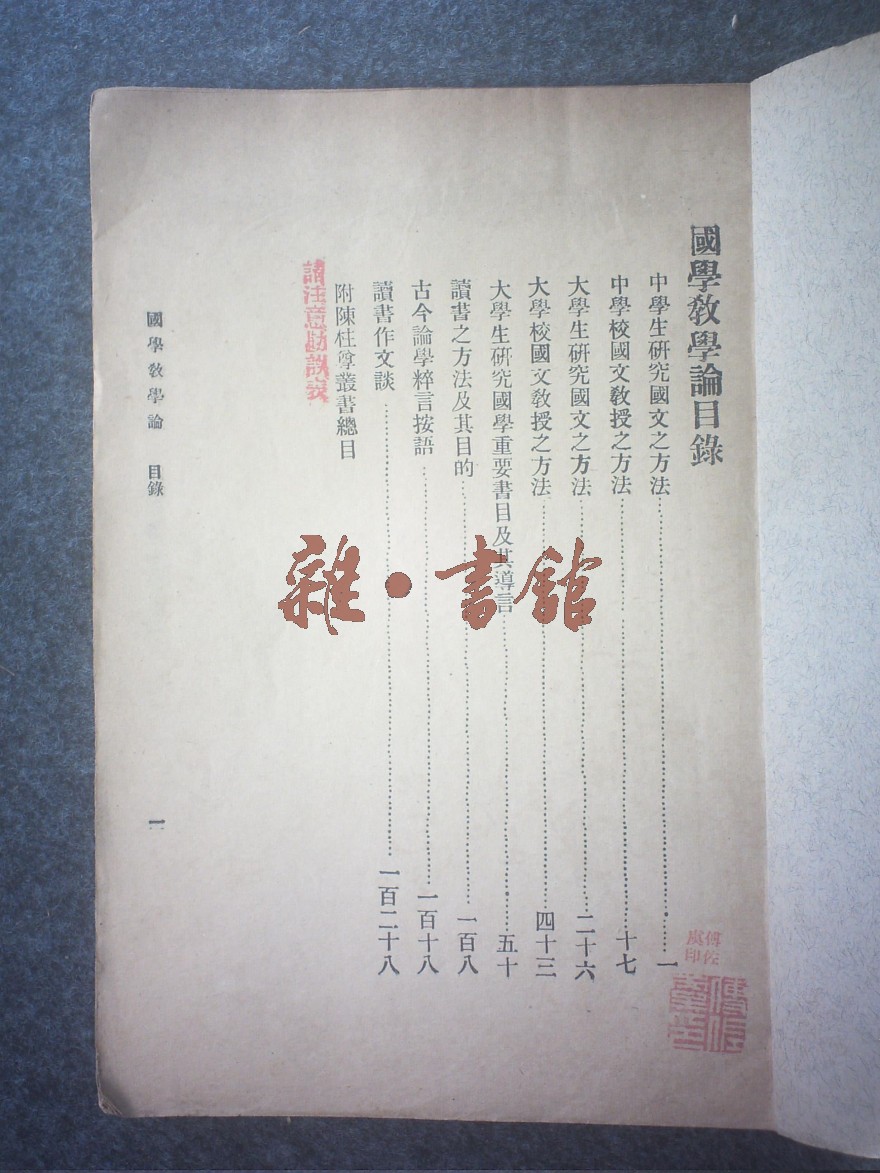 國學教學論目錄
中學生研究國文之方法⋯⋯一
中學校國文教授之方法⋯⋯十七
大學生研究國文之方法⋯⋯二十六
大學校國文教授之方法⋯⋯四十三
大學生研究國學重要書目及其導言⋯⋯五十
讀書之方法及其目的⋯⋯一百八
古今論學粹言按語⋯⋯一百十八
讀書作文談⋯⋯一百二十八
附陳柱尊叢書總目
請注意勘誤表
國學教學論 目錄 一
雜·書館